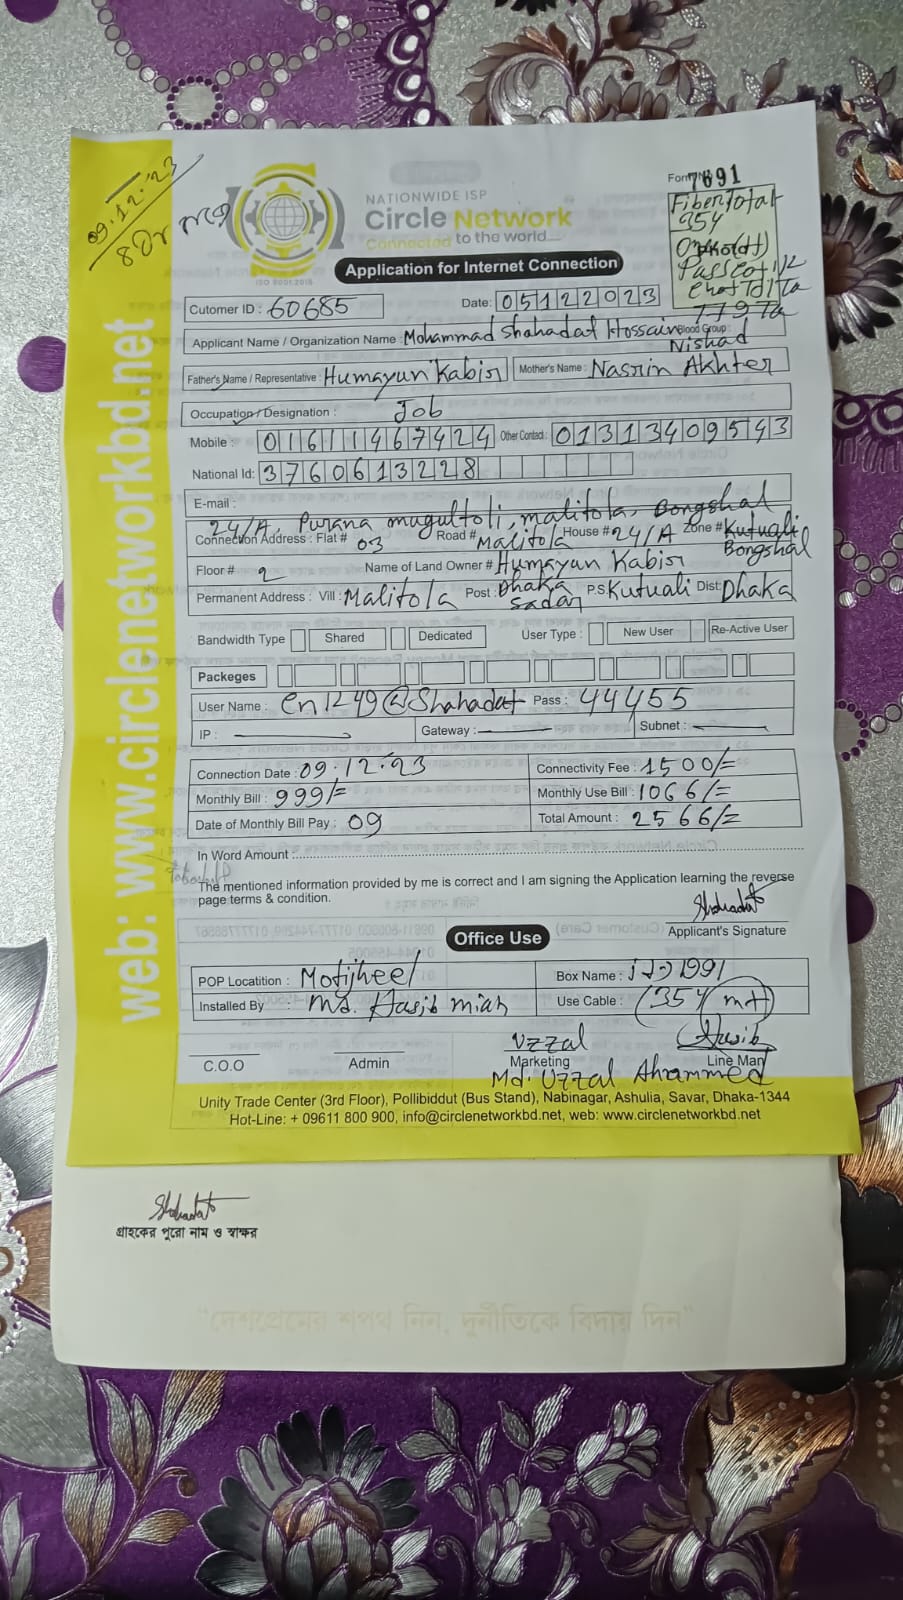 09.12.23
NATIONWIDE ISP
Circle Network
Connected to the world....
ISO 9001:2015
Form
7691
Fiber Total
954
Onu
Application for Internet Connection
Cutomer ID : 60685
Date: 05122023
Applicant Name / Organization Name : Mohammad Shahadat Hossain Blood Group :
Nishad
Father's Name / Representative : Humayun Kabir Mother's Name : Nasrin Akhter
Occupation / Designation : Job
Mobile : 01611467424 Other Contact : 01313409543
National Id: 3760613228
E-mail :
24/A, Purana mugultoli, malitola, Bongshal
Connection Address : Flat # 03 Road # Malitola House # 24/A Zone # Kutuali
Bongshal
Floor # 2 Name of Land Owner # Humayun Kabir
Permanent Address : Vill : Malitola Post : Dhaka Sadar P.S Kutuali Dist: Dhaka
Bandwidth Type Shared Dedicated User Type : New User Re-Active User
Packeges
User Name : en1249@Shahadat Pass : 44455
IP : Gateway : Subnet :
Connection Date : 09.12.23 Connectivity Fee : 1500/=
Monthly Bill : 999/= Monthly Use Bill : 1066/=
Date of Monthly Bill Pay : 09 Total Amount : 2566/=
In Word Amount :
The mentioned information provided by me is correct and I am signing the Application learning the reverse
page terms & condition.
Shahadat
Applicant's Signature
Office Use
POP Locatition : Motijheel Box Name : 1991
Installed By : Md. Hasib miah Use Cable : 354 mt
Uzzal Hasib
C.O.O Admin Marketing Line Man
Md. Uzzal Ahammed
Unity Trade Center (3rd Floor), Pollibiddut (Bus Stand), Nabinagar, Ashulia, Savar, Dhaka-1344
Hot-Line: + 09611 800 900, info@circlenetworkbd.net, web: www.circlenetworkbd.net
web: www.circlenetworkbd.net
Shahadat
গ্রাহকের পুরো নাম ও স্বাক্ষর
"দেশপ্রেমের শপথ নিন, দুর্নীতিকে বিদায় দিন"